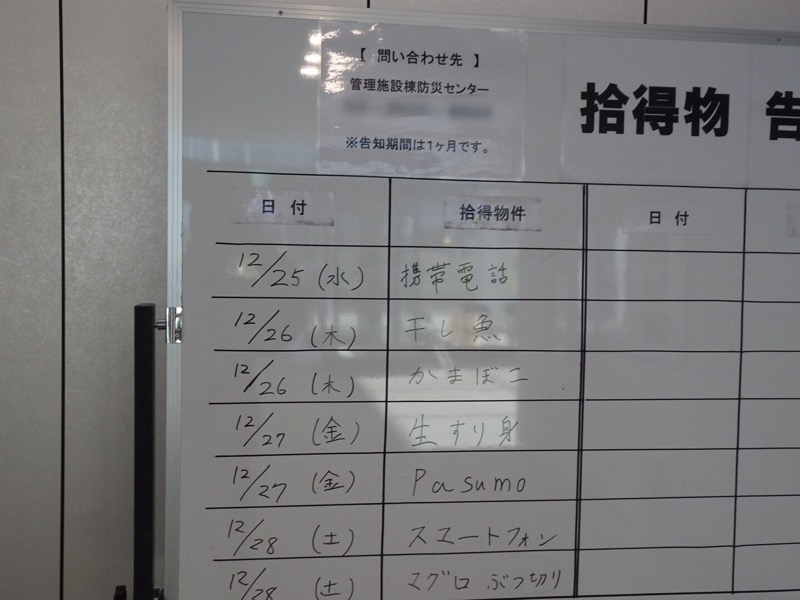 【 問い合わせ先 】
管理施設棟防災センター
※告知期間は1ヶ月です。
拾得物 告
日付 拾得物件 日付
12/25 (水) 携帯電話
12/26 (木) 干し魚
12/26 (木) かまぼこ
12/27 (金) 生すり身
12/27 (金) Pasumo
12/28 (土) スマートフォン
12/28 (土) マグロぶつ切り